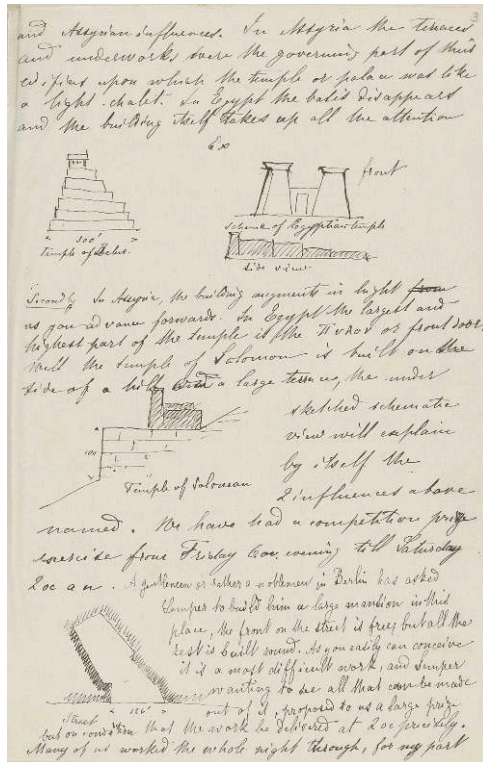 3
and Assyrian influences. In Assyria the terraces
and underworks were the governing part of their
edifices upon which the temple or palace was like
a light chalet. In Egypt the basis disappears
and the building itself takes up all the attention
Ex
front
300'
Temple of Belus.
Scheme of Egyptian temple
Side view
Secondly In Assyria, the building augments in hight from
as you advance forwards. In Egypt the largest and
highest part of the temple is the Πυλον or front door.
Well the temple of Salomon is built on the
side of a hill with a large terrace, the under
sketched schematic
view will explain
by itself the
2 influences above
100
Temple of Salomon
named. We have had a competitive prize
exercise from Friday 6 evening till Saturday
2oc a n. A gentleman or rather a nobleman in Berlin has asked
Semper to build him a large mansion in this
place, the front on the street is free, but all the
rest is built round. As you easily can conceive
it is a most difficult work, and Semper
wanting to see all that can be made
out of it, proposed to us a large prize
Street
126'
but on condition that the work be delivered at 2oc precisely.
Many of us worked the whole night through, for my part